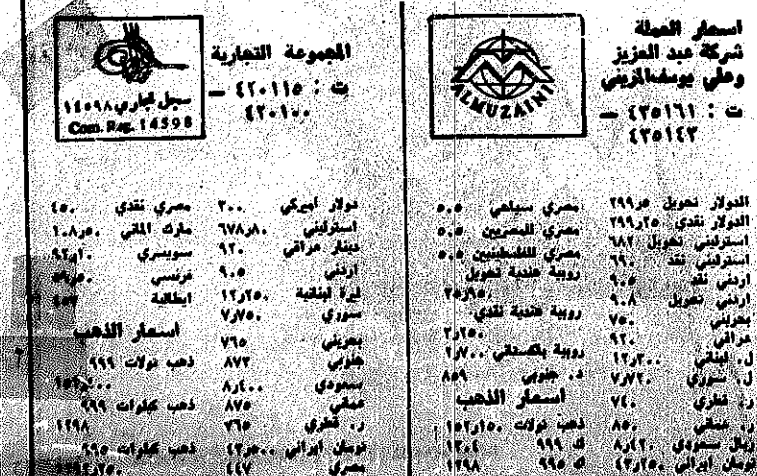 اسعار العملة
شركة عبد العزيز
وعلي يوسف المزيني
ت : ٤٣٥١٦١ —
٤٣٥١٤٣
ALMUZAINI
الدولار تحويل ٢٩٩٫٥
الدولار نقدي ٢٩٩٫٢٥
استرليني تحويل ٦٨٢
استرليني نقد ٦٩٠
اردني نقد ٩٠٥
اردني تحويل ٩٠٨
بحريني ٧٥٠
عراقي ٩٢٠
ل. لبناني ١٢٫٢٠٠
ل. سوري ٧٫٧٢٠
ر. قطري ٧٤٠
ر. عماني ٨٥٠
ريال سعودي ٨٫٤٢٠
مصري سياحي ٥٠٥
مصري للمصريين ٥٠٥
مصري للفلسطينيين ٥٠٥
روبية هندية تحويل
روبية هندية نقدي
٣٫٢٥٠
روبية باكستاني
د. جنوبي ٨٥٩
اسعار الذهب
ذهب تولات ١٥٢٫١٥٠
ك ٩٩٩ ١٣٠٤
ك ٩٩٥ ١٢٩٨
المجموعة التجارية
ت : ٤٢٠١١٥ —
٤٢٠١٠٠
سجل تجاري ١٤٥٩٨
Com. Reg. 14598
دولار اميركي ٣٠٠
استرليني ٦٧٨٫٨٠
دينار عراقي ٩٢٠
اردني ٩٠٥
ليرة لبنانية ١٢٫٢٥٠
سوري ٧٫٧٥٠
بحريني ٧٦٥
جنوبي ٨٧٢
سعودي ٨٫٤٠٠
عماني ٨٧٥
ر. قطري ٧٦٥
تومان ايراني
مصري ٤٤٧
مصري نقدي ٤٥٠
مارك الماني ١٠٨٫٥٠
سويسري
فرنسي
ايطالية
اسعار الذهب
ذهب تولات ٩٩٩
ذهب كيلوات ٩٩٩
١٢٩٨
ذهب كيلوات ٩٩٥